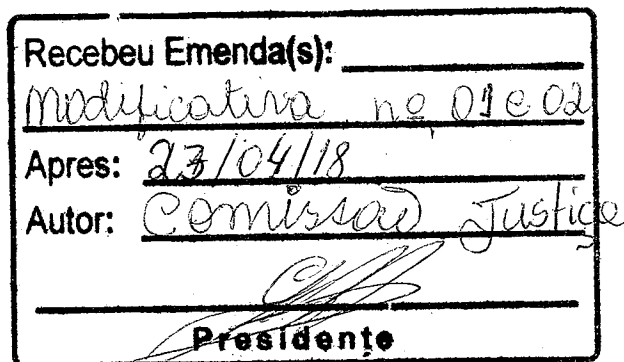 Recebeu Emenda(s):
Modificativa nº 01 e 02
Apres: 23/04/18
Autor: Comissão Justiça
Presidente